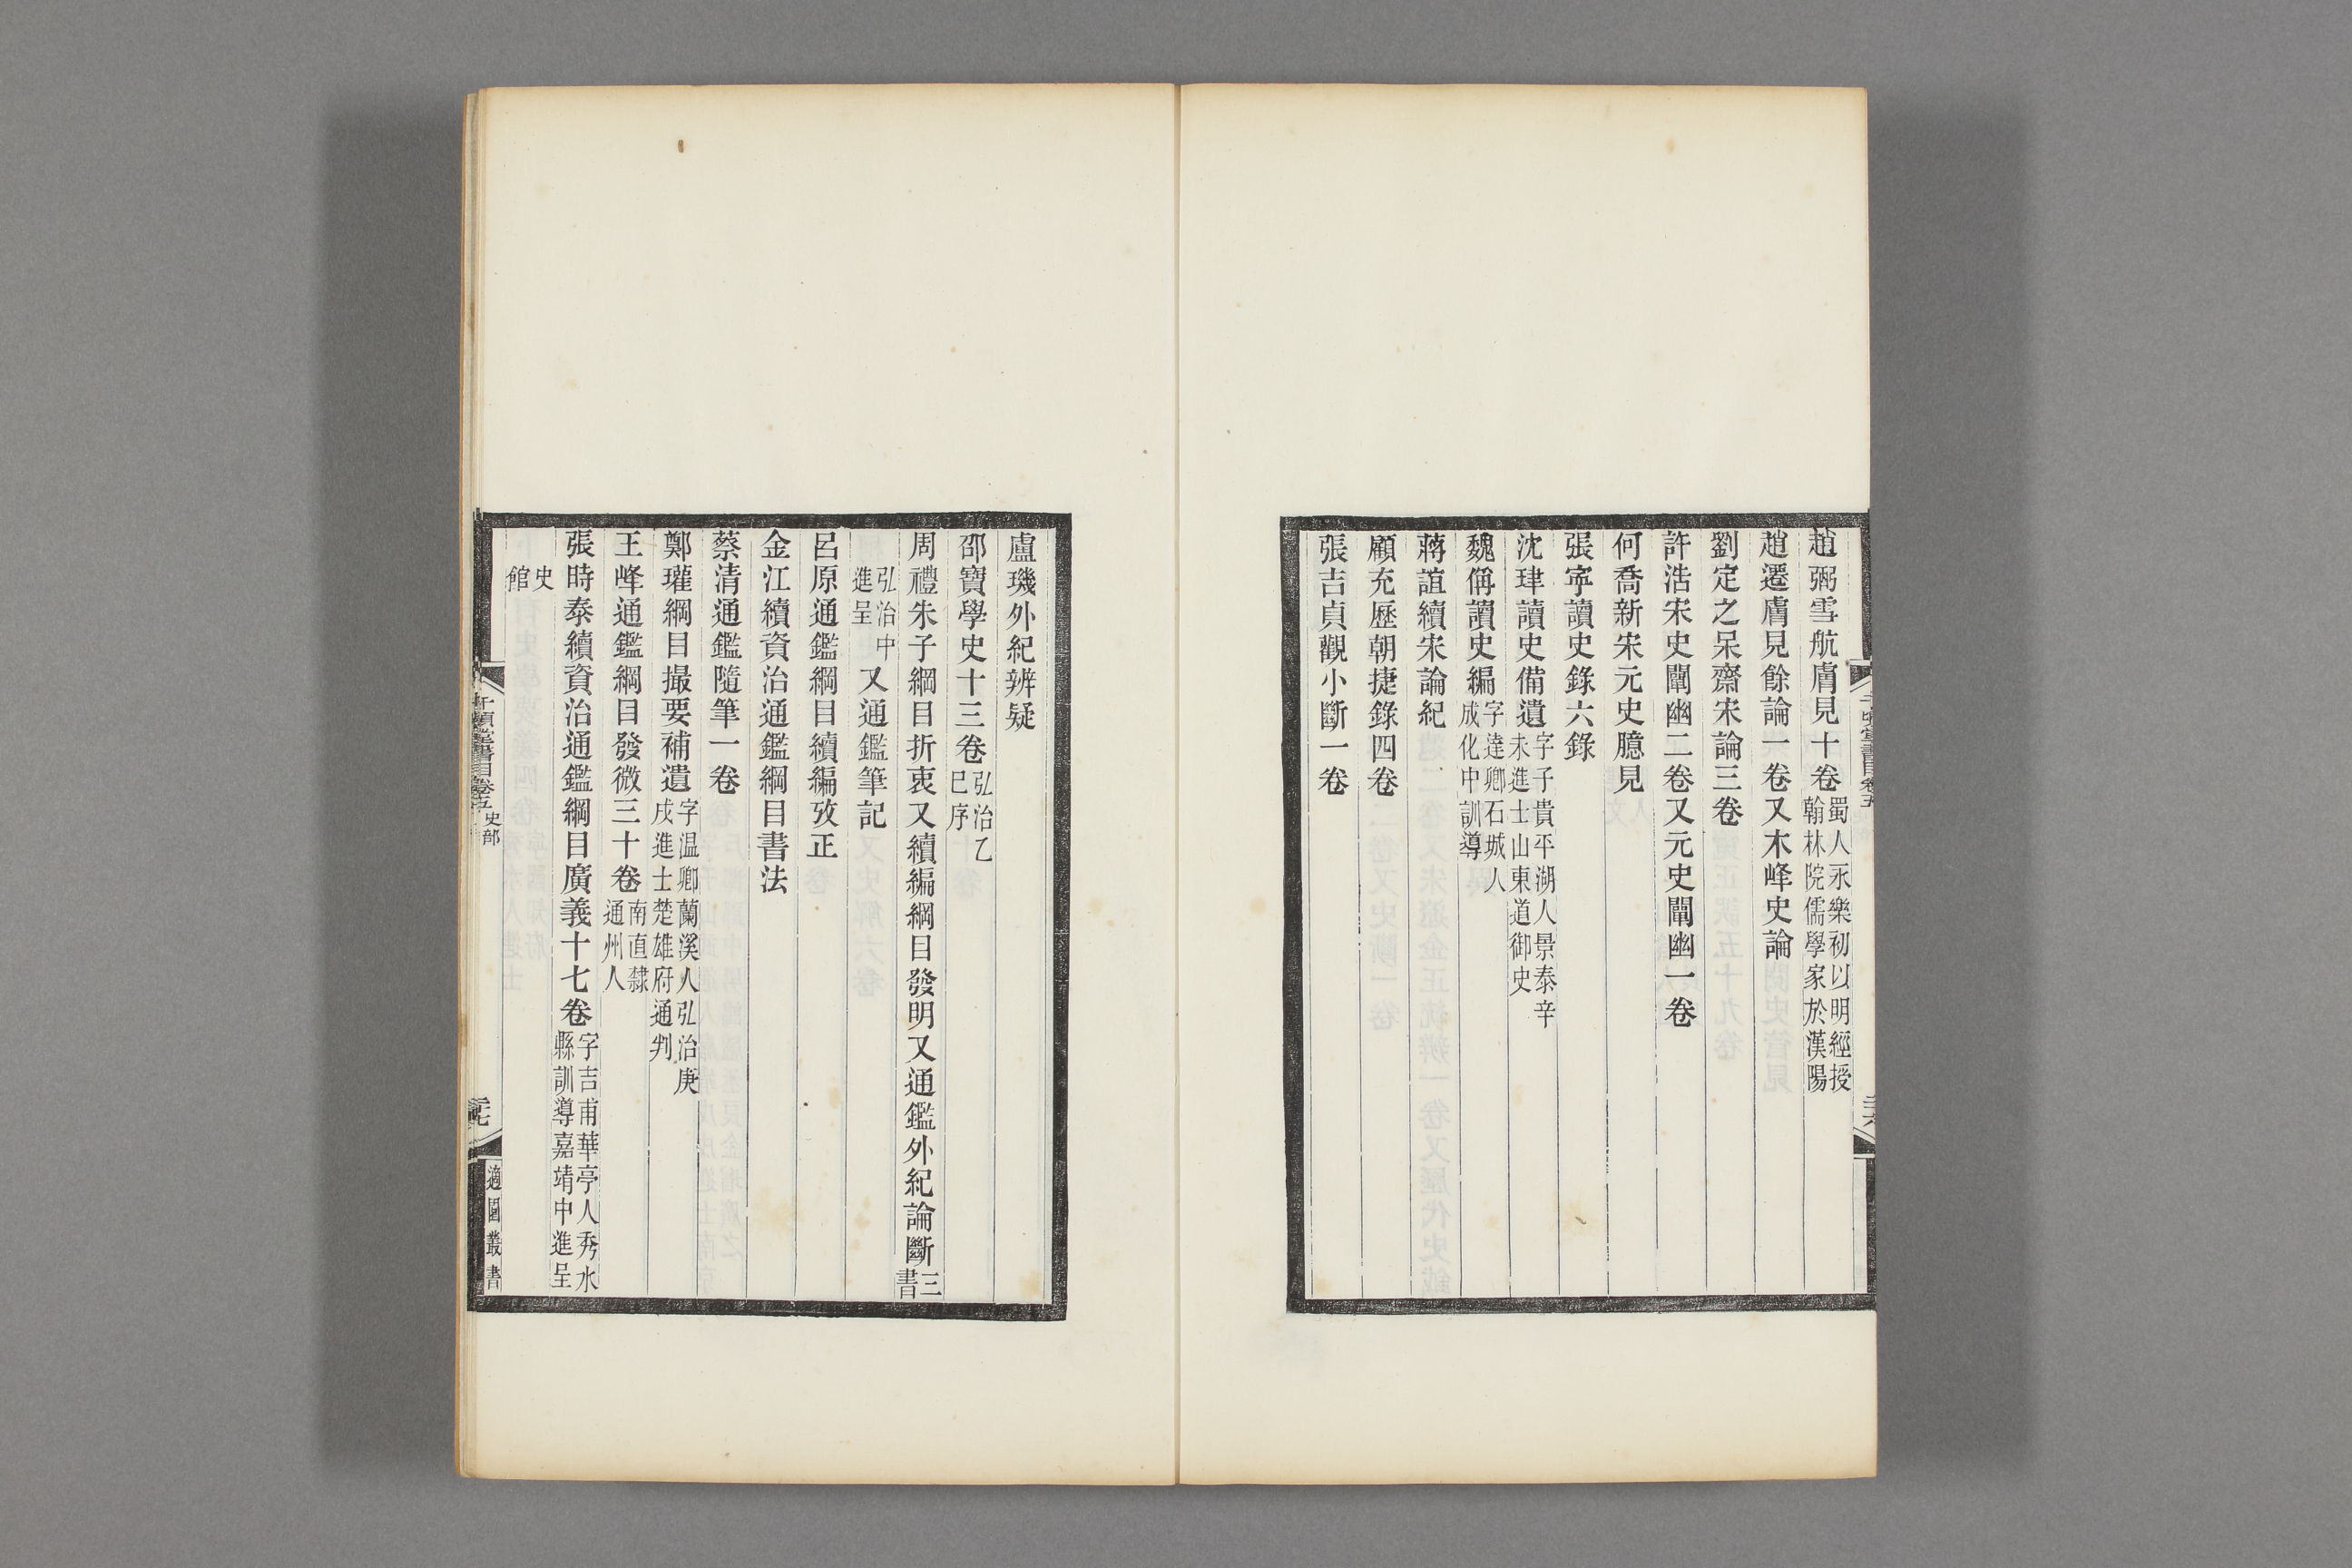 趙弼雪航膚見十卷蜀人永樂初以明經授翰林院儒學家於漢陽
趙遷膚見餘論一卷又木峰史論
劉定之呆齋宋論三卷
許浩宋史闡幽二卷又元史闡幽一卷
何喬新宋元史臆見
張寧讀史錄六錄
沈珒讀史備遺字子貴平湖人景泰辛未進士山東道御史
魏偁讀史編字達卿石城人成化中訓導
蔣誼續宋論紀
顧充歷朝捷錄四卷
張吉貞觀小斷一卷
盧璣外紀辨疑
邵寶學史十三卷弘治乙巳序
周禮朱子綱目折衷又續編綱目發明又通鑑外紀論斷三書
弘治中進呈又通鑑筆記
呂原通鑑綱目續編攷正
金江續資治通鑑綱目書法
蔡清通鑑隨筆一卷
鄭瓘綱目撮要補遺字温卿蘭溪人弘治庚戌進士楚雄府通判
王峰通鑑綱目發微三十卷南直隸通州人
張時泰續資治通鑑綱目廣義十七卷字吉甫華亭人秀水縣訓導嘉靖中進呈
史館
千頃堂書目卷五 史部
適園叢書